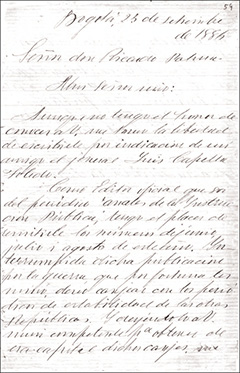 54
Bogotá, 23 de setiembre
de 1886
Señor don Ricardo Palma
Muy Señor mio:
Aunque no tengo el honor de
conocer a U, me tomo la libertad
de escribirle por indicacion de mi
amigo el Jeneral Luis Capella
Toledo.
Como Editor oficial que soi
del periódico "Anales de la Instruc
cion Pública", tengo el placer de
remitirle los números de junio,
julio i agosto de este año. In
terrumpida dicha publicacion
por la guerra, que por fortuna ter
minó, deseo canjear con los perió
dicos de
Repúblicas. Y
mui competente pa. obtener de
esa capital dichos canjes, me